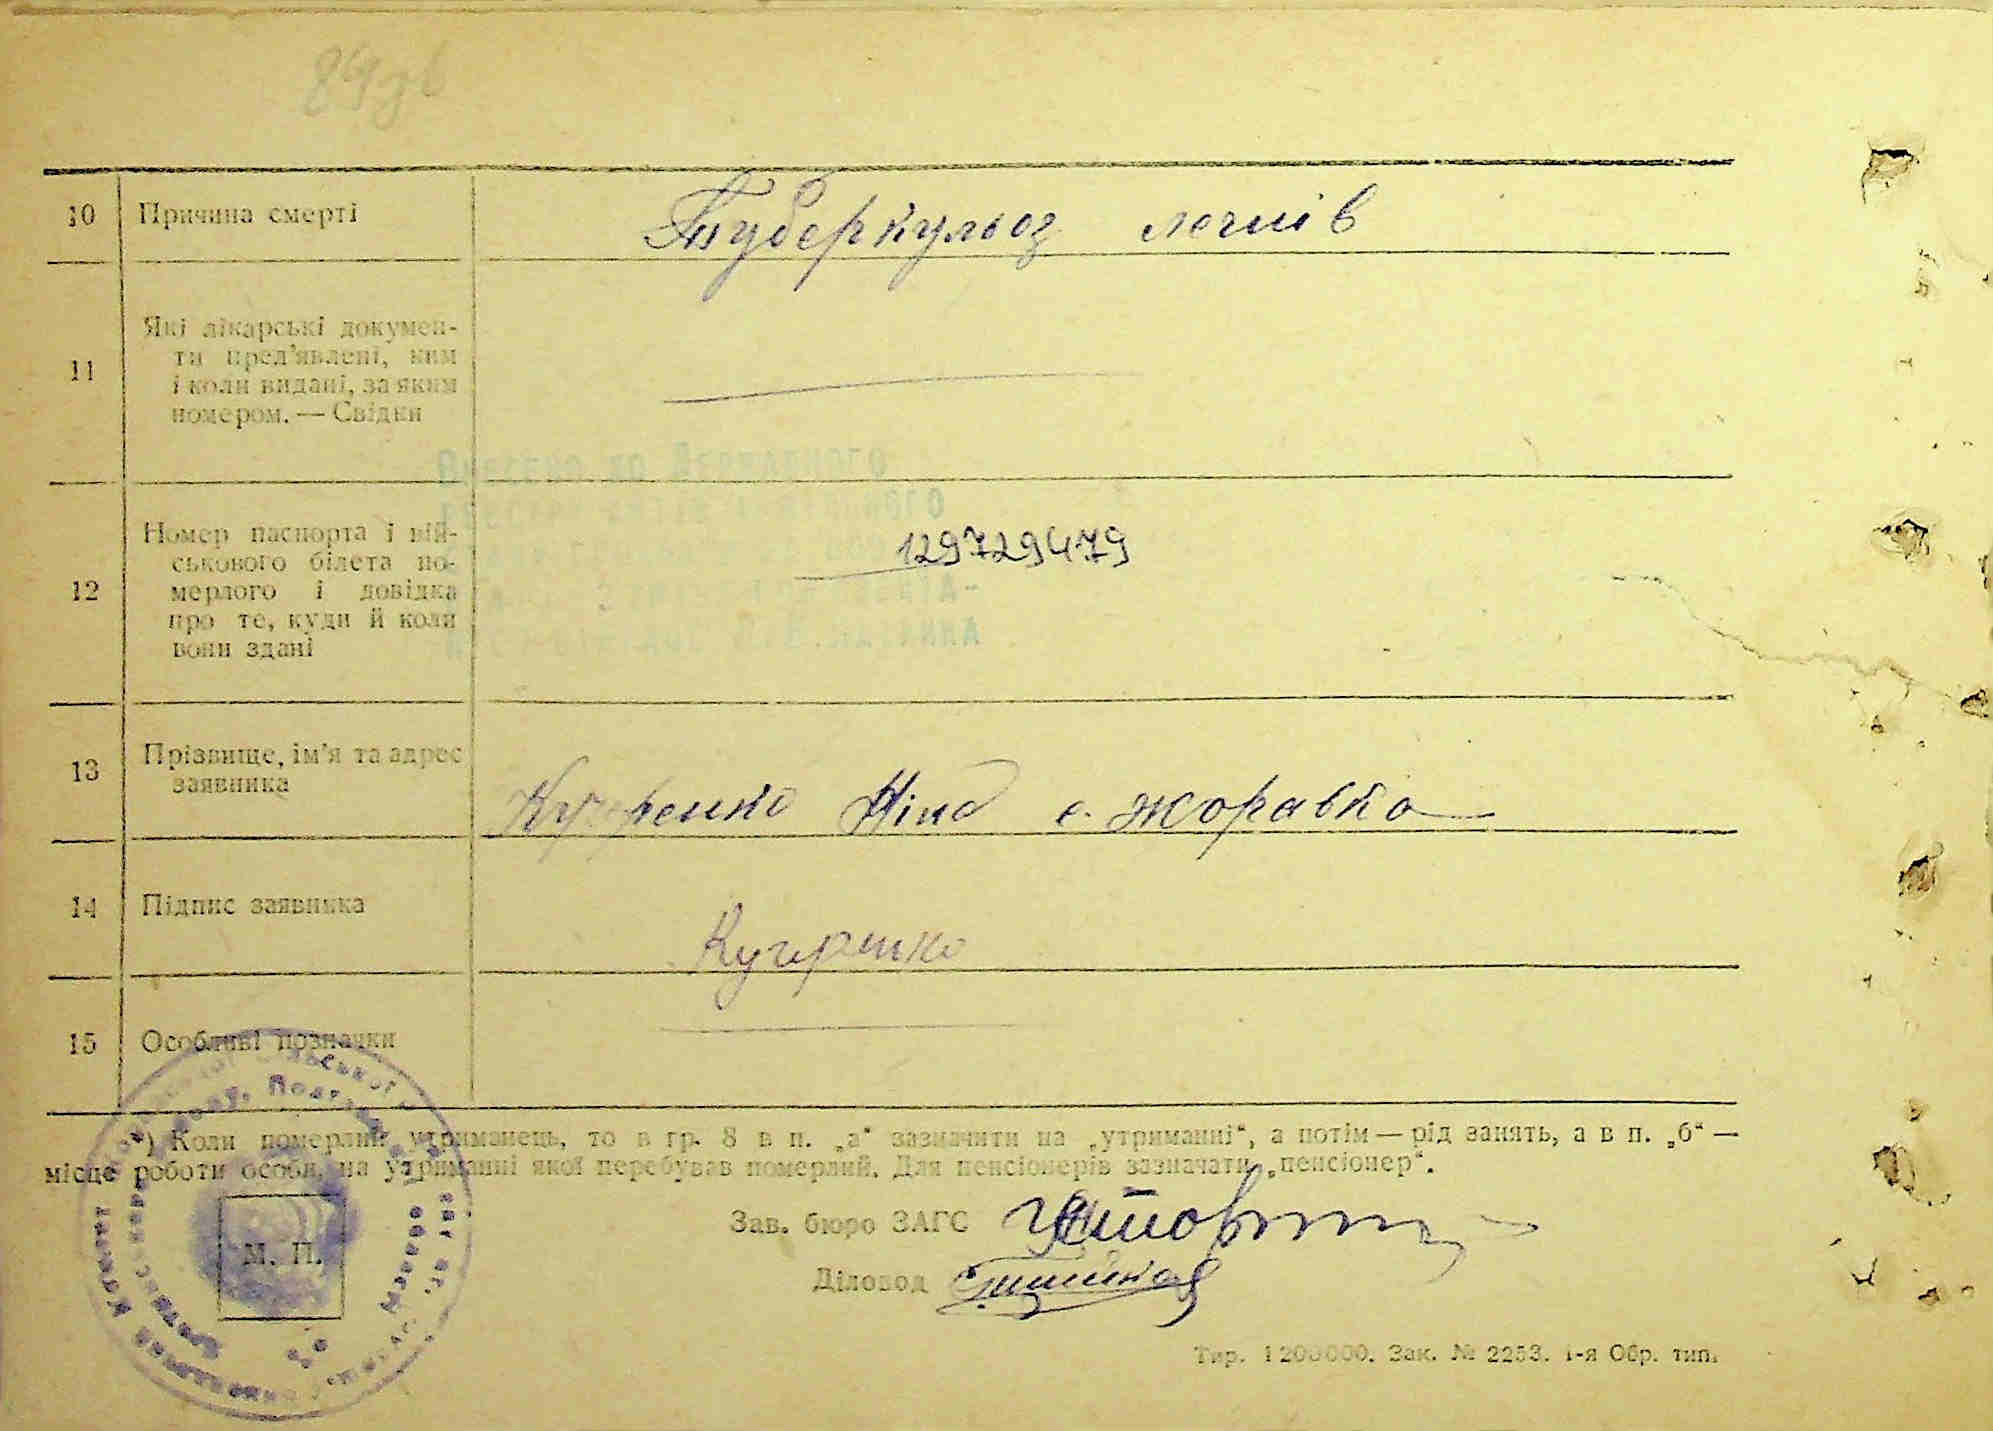 10 Причина смерті Туберкульоз легнів
11 Які лікарські докумен-
ти пред'явлені, ким
і коли видані, за яким
номером. — Свідки
Внесено до Державного
12 Номер паспорта і вій-
ськового білета по-
мерлого і довідка
про те, куди й коли
вони здані
129729479
13 Прізвище, ім'я та адрес
заявника
Кучеренко Ніна с. Жоравка
14 Підпис заявника Кучеренко
15 Особливі позначки
*) Коли померлий утриманець, то в гр. 8 в п. „а“ зазначити на „утриманні“, а потім — рід занять, а в п. „б“ —
місце роботи особи, на утриманні якої перебував померлий. Для пенсіонерів зазначати „пенсіонер“.
Зав. бюро ЗАГС
М. П.
Діловод
Тир. 1200000. Зак. № 2253. 1-я Обр. тип.